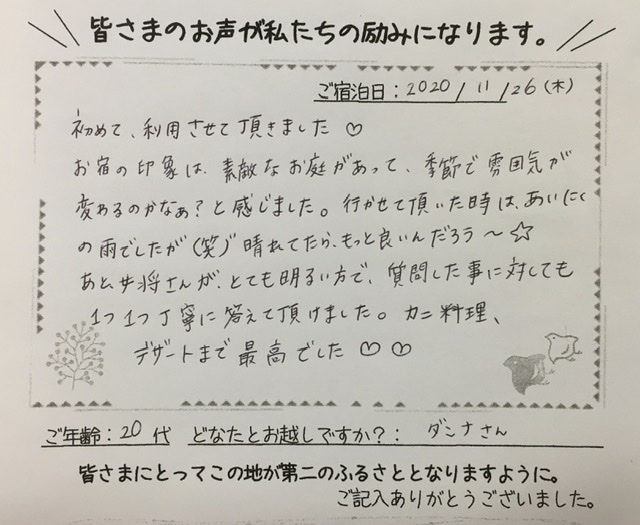 皆さまのお声が私たちの励みになります。
ご宿泊日：2020/11/26(木)
初めて、利用させて頂きました♡
お宿の印象は、素敵なお庭があって、季節で雰囲気が
変わるのかなぁ？と感じました。行かせて頂いた時は、あいにく
の雨でしたが(笑)゛晴れてたら、もっと良いんだろう〜☆
あと、女将さんが、とても明るい方で、質問した事に対しても
1つ1つ丁寧に答えて頂けました。カニ料理、
デザートまで最高でした♡♡
ご年齢：20代 どなたとお越しですか？：ダンナさん
皆さまにとってこの地が第二のふるさととなりますように。
ご記入ありがとうございました。